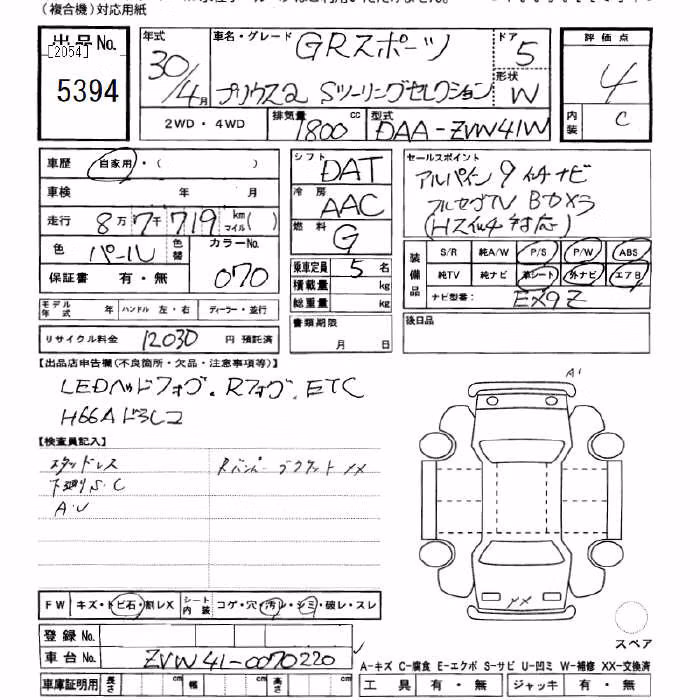 （複合機）対応用紙
出品No.
[2054]
5394
年式
30/4月
車名・グレード
GRスポーツ
プリウスα Sツーリングセレクション
ドア
5
形状
W
評価点
4
内装
C
2WD・4WD
排気量
1800cc
型式
DAA-ZVW41W
車歴
自家用・（　　　）
車検　年　月
走行
8万7千719
km
マイル（　）
色
パール
色替
カラーNo.
070
保証書　有・無
モデル年式　年
ハンドル　左・右
ディーラー・並行
リサイクル料金
12030
円 預託済
シフト
DAT
冷房
AAC
燃料
G
乗車定員
5名
積載量　kg
総重量　kg
書類期限
月　日
セールスポイント
アルパイン9インチナビ
フルセグTV Bカメラ
装備品
S/R 純A/W P/S P/W ABS
純TV 純ナビ 革シート 外ナビ エアB
ナビ型番：
EX9Z
後日品
【出品店申告欄(不良箇所・欠品・注意事項等)】
LEDヘッドフォグ．Rフォグ．ETC
【検査員記入】
スタッドレス
下廻りS・C
A・U
FW
キズ・トビ石・割レX
シート内装
コゲ・穴・汚レ・シミ・破レ・スレ
登録No.
車台No.
ZVW41-0070220
車庫証明用
長さ　cm
幅　cm
高さ　cm
A1
スペア
A-キズ C-腐食 E-エクボ S-サビ U-凹ミ W-補修 XX-交換済
工具　有・無
ジャッキ　有・無